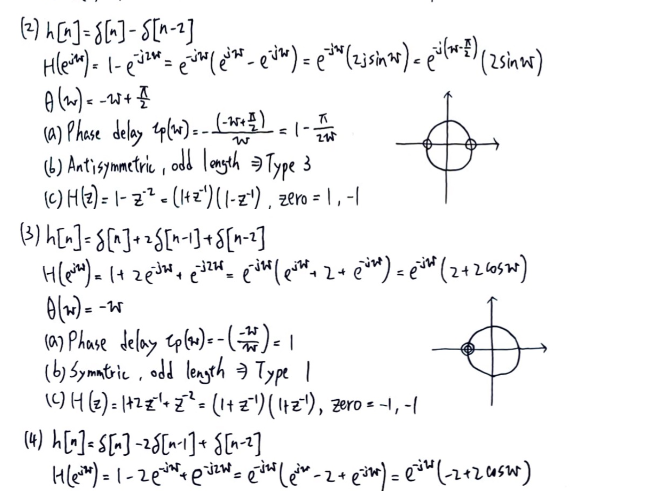 (2) h[n]=δ[n]-δ[n-2]
H(e^{jw})= 1-e^{-j2w}= e^{-jw}(e^{jw}-e^{-jw})= e^{-jw}(2jsinw)= e^{-j(w-π/2)}(2sinw)
θ(w)= -w+π/2
(a) Phase delay τp(w)= -(-w+π/2)/w = 1-π/2w
(b) Antisymmetric, odd length ⇒ Type 3
(c) H(z)= 1-z^{-2} = (1+z^{-1})(1-z^{-1}), zero = 1, -1
(3) h[n]=δ[n]+2δ[n-1]+δ[n-2]
H(e^{jw})= 1+2e^{-jw}+e^{-j2w}= e^{-jw}(e^{jw}+2+e^{-jw})= e^{-jw}(2+2cosw)
θ(w)= -w
(a) Phase delay τp(w)= -(-w/w)= 1
(b) Symmtric, odd length ⇒ Type 1
(c) H(z)= 1+2z^{-1}+z^{-2}= (1+z^{-1})(1+z^{-1}), zero = -1, -1
(4) h[n]=δ[n]-2δ[n-1]+δ[n-2]
H(e^{jw})= 1-2e^{-jw}+e^{-j2w}= e^{-jw}(e^{jw}-2+e^{-jw})= e^{-jw}(-2+2cosw)